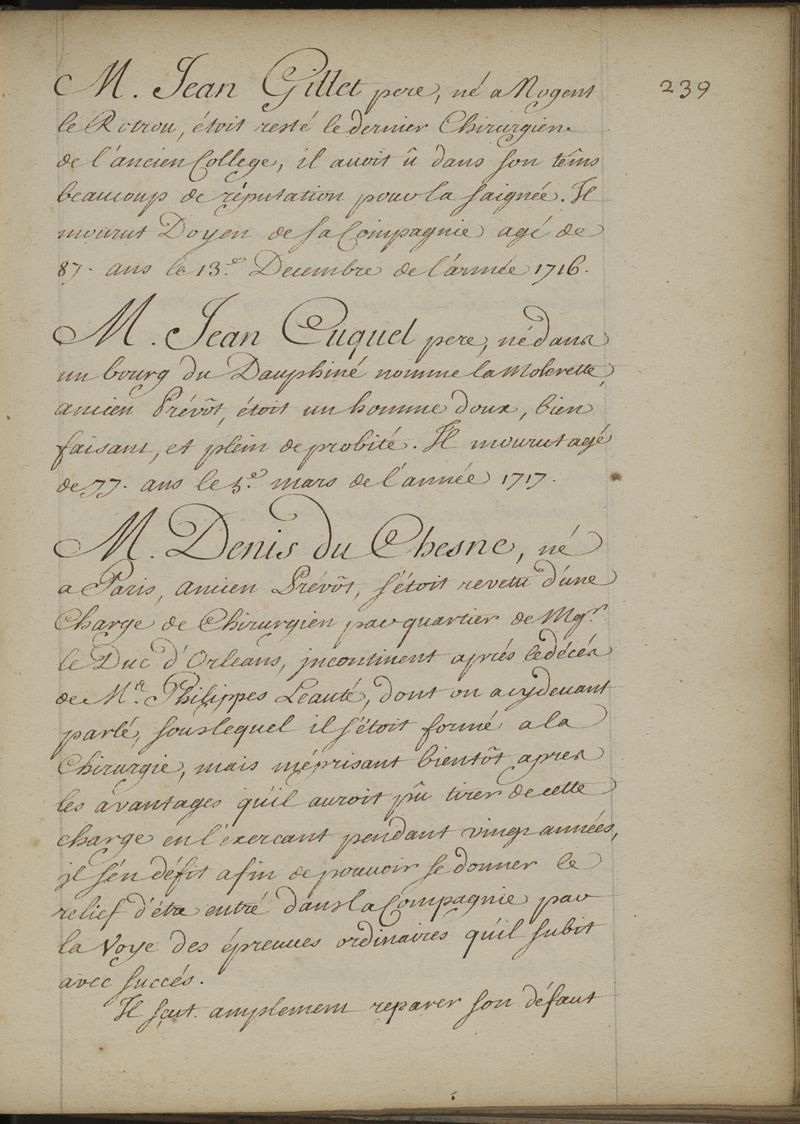 239
M. Jean Gillet pere, né a Nogent
le Rotrou, étoit resté le dernier Chirurgien
de l'ancien College, il avoit û dans son têms
beaucoup de réputation pour la saignée. Il
mourut Doyen de sa Compagnie agé de
87. ans le 13.e Decembre de l'année 1716.
M. Jean Cuquel pere, né dans
un bourg du Dauphiné nommé la Moberette,
ancien Prévôt, étoit un homme doux, bien
faisant, et plein de probité. Il mourut agé
de 77. ans le 5.e mars de l'année 1717.
M. Denis du Chesne, né
a Paris, ancien Prévôt, s'étoit revetu d'une
Charge de Chirurgien par quartier de Mgr.
le Duc d'Orleans, incontinent aprés le décés
de Mr. Philippes Leauté, dont on a cy devant
parlé, sous lequel il s'étoit formé a la
Chirurgie, mais méprisant bientôt apres
les avantages qu'il auroit pû tirer de cette
charge en l'éxercant pendant vingt années,
il s'en défit afin de pouvoir se donner le
relief d'étre entré dans la Compagnie par
la Voye des épreuves ordinaires qu'il subit
avec succés.
Il sçut amplement reparer son défaut